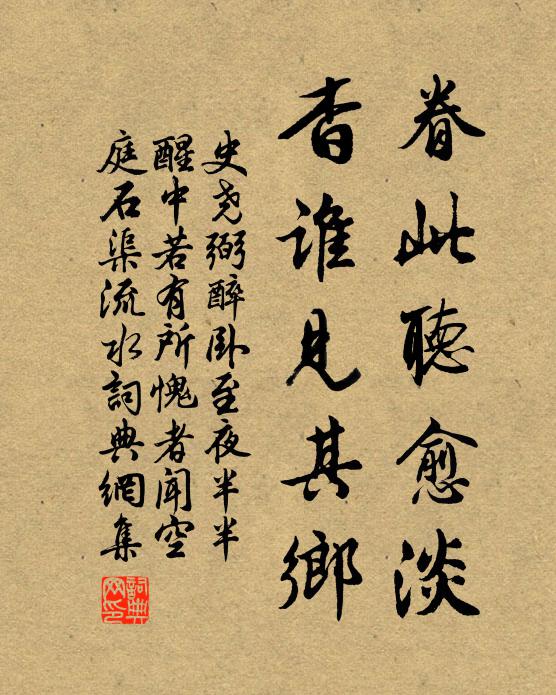 眷此聽愈淡
杳誰見其鄉
史堯弼醉卧至夜半半
醒中若有所愧者聞空
庭石渠流水詞典網集
詞典网印